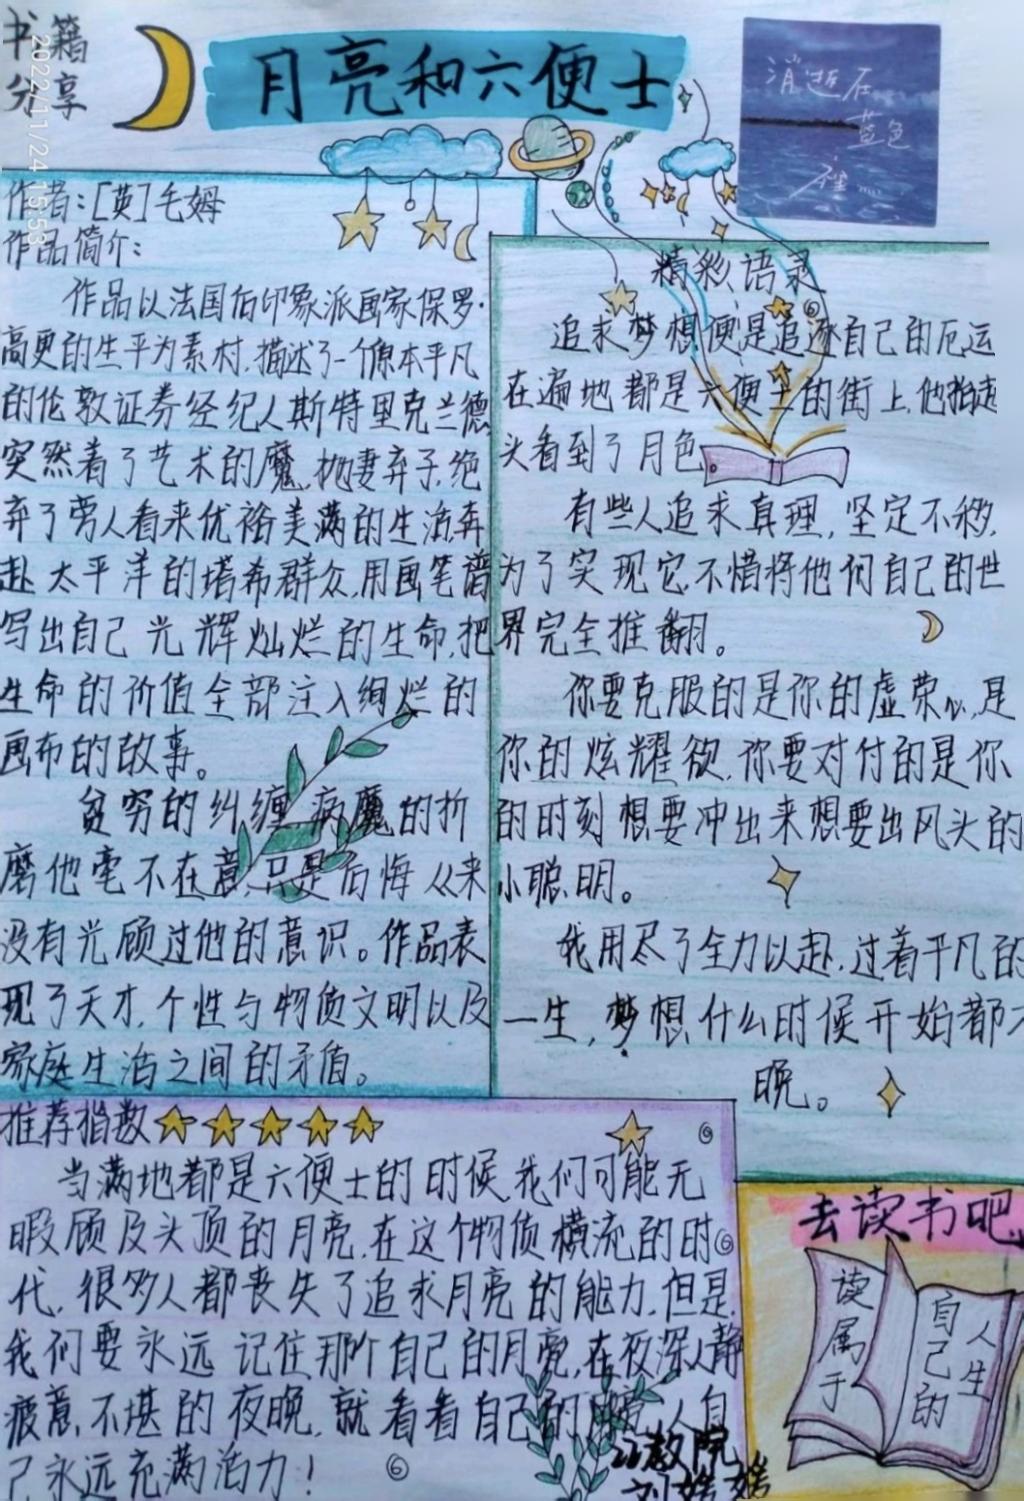 书籍
分享
2022/11/24 15:53
月亮和六便士
消逝在
蓝色
作者:[英]毛姆
作品简介:
作品以法国后印象派画家保罗·
高更的生平为素材,描述了一个原本平凡
的伦敦证券经纪人斯特里克兰德
突然着了艺术的魔,抛妻弃子,绝
弃了旁人看来优裕美满的生活,奔
赴太平洋的塔希群众,用画笔谱
写出自己光辉灿烂的生命,把
生命的价值全部注入绚烂的
画布的故事。
贫穷的纠缠,病魔的折
磨他毫不在意,只是后悔从来
没有光顾过他的意识。作品表
现了天才,个性与物质文明以及
家庭生活之间的矛盾。
精彩语录
追求梦想便是追逐自己的厄运
在遍地都是六便士的街上,他抬起
头看到了月色。
有些人追求真理,坚定不移,
为了实现它,不惜将他们自己的世
界完全推翻。
你要克服的是你的虚荣心,是
你的炫耀欲,你要对付的是你
的时刻想要冲出来想要出风头的
小聪明。
我用尽了全力以赴,过着平凡的
一生,梦想什么时候开始都不
晚。
推荐指数
当满地都是六便士的时候,我们可能无
暇顾及头顶的月亮,在这个物质横流的时
代,很多人都丧失了追求月亮的能力,但是
我们要永远记住那个自己的月亮,在夜深人静
疲惫不堪的夜晚,就看看自己的月亮,人自
己永远充满活力!
教院
刘
去读书吧
读属于
自己的
人生